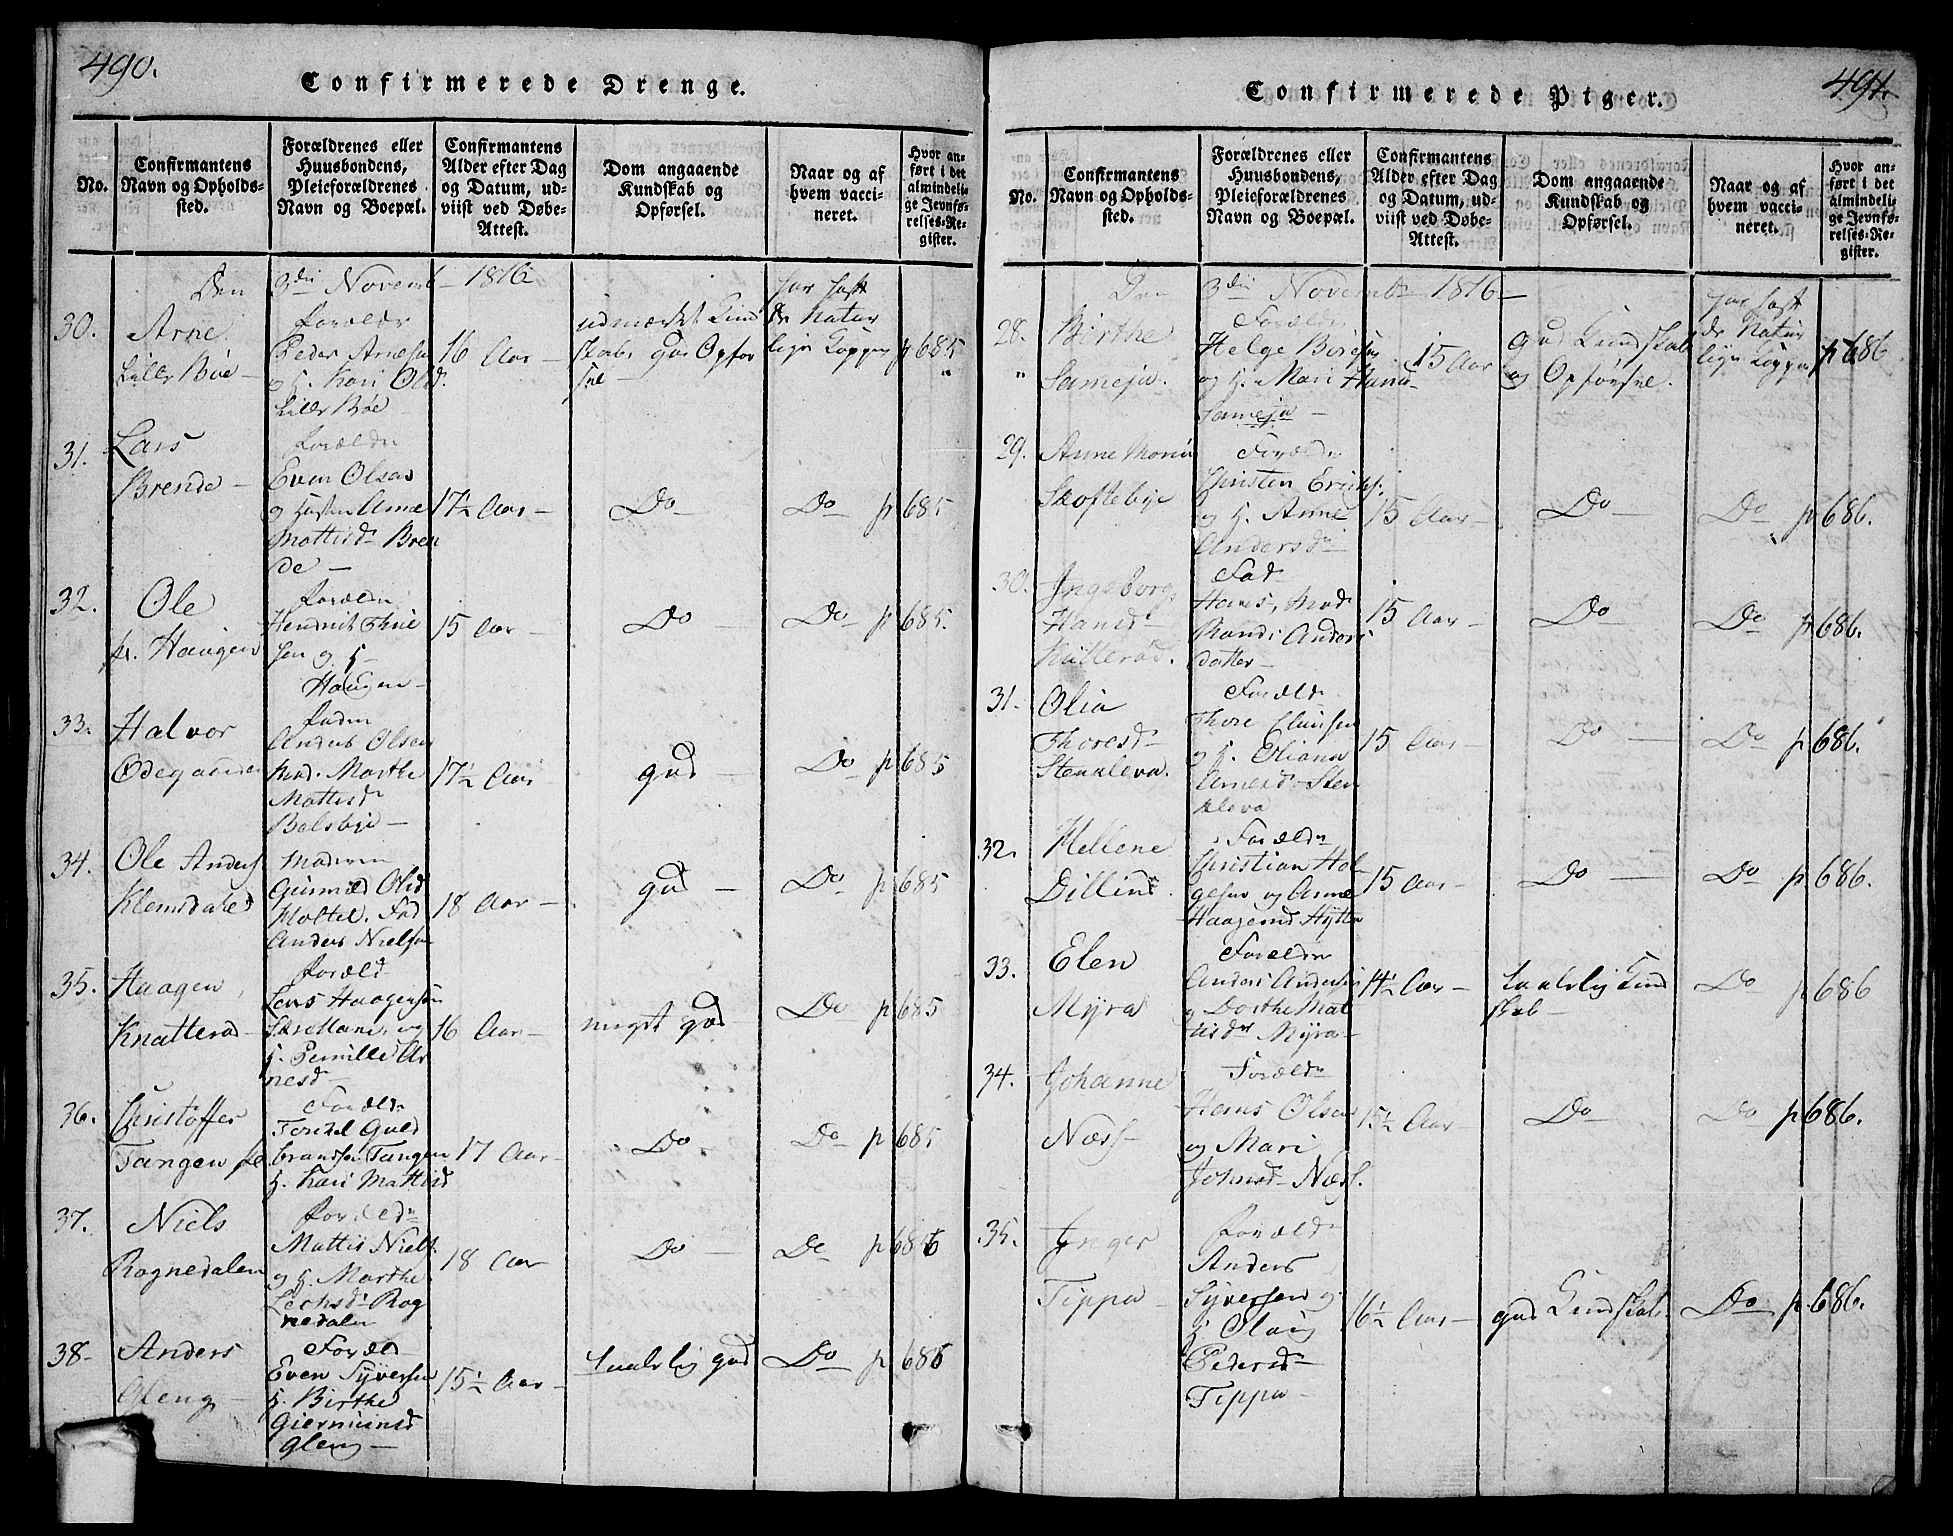 490.
Confirmerede Drenge.
No.
Confirmantens
Navn og Opholds-
sted.
Forældrenes eller
Huusbondens,
Pleieforældrenes
Navn og Boepæl.
Confirmantens
Alder efter Dag
og Datum, ud-
viist ved Døbe-
Attest.
Dom angaaende
Kundskab og
Opførsel.
Naar og af
hvem vacci-
neret.
Hvor an-
ført i det
almindeli-
ge Jevnfø-
relses-Re-
gister.
Den 3die Novemb 1816
30.
Arne
Lille Bøe
Foræld
Peder Arnesen
og H. Kari Olsd.
Lille Bøe
16 Aar
udmærket Kund
skab god Opfør
sel
har haft
de Natur
lige Kopper
p 685
31.
Lars
Brende
Foræld
Even Olsen
og Anne
Mattisd Bren
de
17½ Aar
Do
Do
p 685
32.
Ole
Haugen
Foræld
Hendrik
sen og H
Haugen
15 Aar
Do
Do
p 685.
33.
Halvor
Ødegaarden
Fader
Anders Olsen
Mod. Marthe
Mattisd
Bølsbye
17½ Aar
god
Do
p 685
34.
Ole Anders
Klemsdahl
Moderen
Gunnild Olsd
Holtet. Fad
Anders Nielsen
18 Aar
god
Do
p 685
35.
Haagen
Knatterød
Foræld
Lars Haagensen
og
H. Pernille Ar
nesd
16 Aar
meget god
Do
p 685
36.
Christoffer
Tangen
Foræld
Guld
brandsen Tangen
H. Kari Mattisd
17 Aar
Do
Do
p 685
37.
Niels
Rognedalen
Foræld
Mattis Niels
og H. Marthe
Rog
nedalen
18 Aar
Do
Do
p 686
38
Anders
Gleng
Foræld
Even Syversen
H. Birthe
Giermunsd
Gleng
15½ Aar
taalelig god
Do
p 686
491.
Confirmerede Piger.
No.
Confirmantens
Navn og Opholds-
sted.
Forældrenes eller
Huusbondens,
Pleieforældrenes
Navn og Boepæl.
Confirmantens
Alder efter Dag
og Datum, ud-
viist ved Døbe-
Attest.
Dom angaaende
Kundskab og
Opførsel.
Naar og af
hvem vacci-
neret.
Hvor an-
ført i det
almindeli-
ge Jevnfø-
relses-Re-
gister.
Den 3die Novemb 1816
28.
Birthe
Sameja.
Foræld
Helge Børesen
og H. Mari Hansd
Sameja
15 Aar
god Kundskab
og Opførsel.
har haft
de Natur
lige Kopper
p 686
29.
Anne Maria
Skoftebye
Foræld
Christen Ericks.
og H. Anne
Andersd
15 Aar
Do
Do
p 686.
30.
Ingeborg
Hansd
Knatterød.
Fad
Hans, Mod
Randi Anders
datter
15 Aar
Do
Do
p 686.
31.
Olia
Thoresd
Stenkleva.
Foræld
Thore Clausen
og H. Eliana
Arnesd Sten
kleva
15 Aar
Do
Do
p 686.
32.
Hellene
Dilling
Foræld
Christian Hel
gesen og Anne
Haagensd Hytten
15 Aar
Do
Do
p 686.
33.
Elen
Myra
Foræld
Anders Andersen
og Dorthe Mat
tisdr Myra
14½ Aar
taalelig Kund
skab
Do
p 686
34.
Johanne
Næss
Foræld
Hans Olsen
og Mari
Johnsd Næss.
15½ Aar
Do
Do
p 686.
35.
Inger
Tippa
Foræld
Anders
Syversen og
H. Olaug
Pedersd
Tippa
16½ Aar
god Kundskab
Do
p. 686.